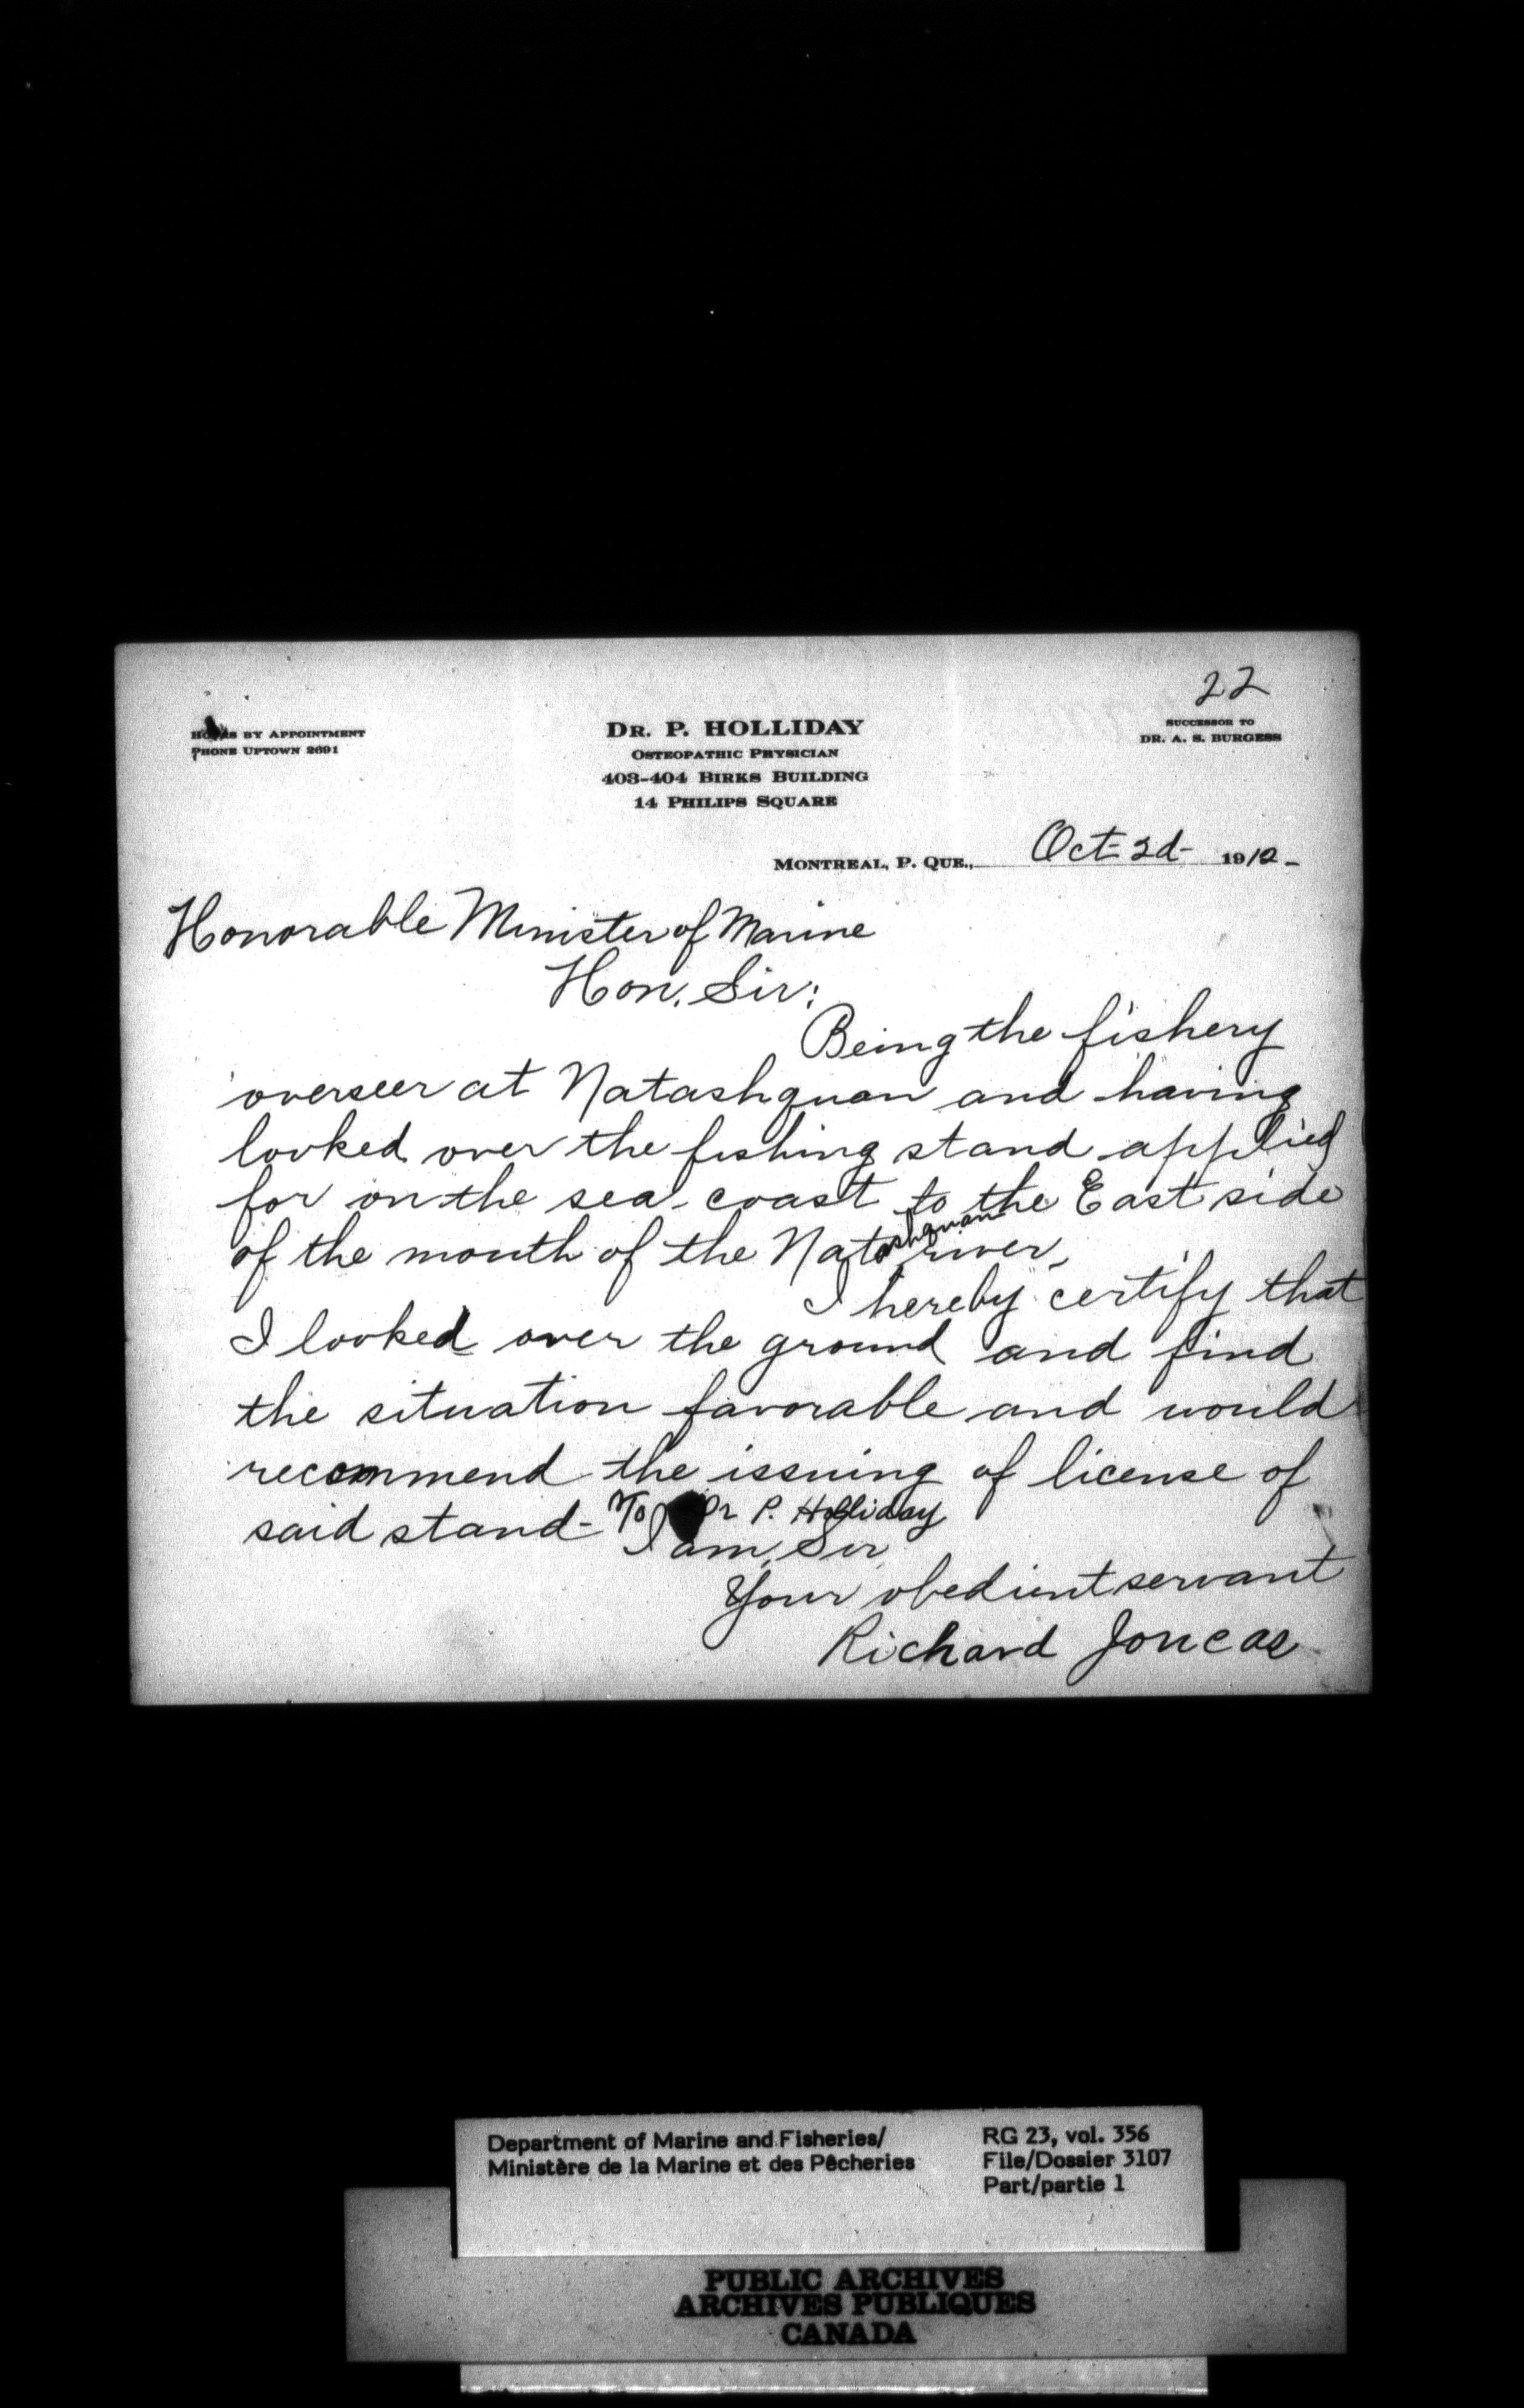 22
HOURS BY APPOINTMENT
PHONE UPTOWN 2691
DR. P. HOLLIDAY
OSTEOPATHIC PHYSICIAN
403-404 BIRKS BUILDING
14 PHILIPS SQUARE
SUCCESSOR TO
DR. A. S. BURGESS
MONTREAL, P. QUE., Oct 2d- 1912-
Honorable Minister of Marine
Hon. Sir:
Being the fishery
overseer at Natashquan and having
looked over the fishing stand applied
for on the sea coast to the East side
of the mouth of the Natashquan river,
I hereby certify that
I looked over the ground and find
the situation favorable and would
recommend the issuing of license of
said stand- To Dr P. Holliday
I am, Sir
Your obedient servant
Richard Joncas
Department of Marine and Fisheries/
Ministère de la Marine et des Pêcheries
RG 23, vol. 356
File/Dossier 3107
Part/partie 1
PUBLIC ARCHIVES
ARCHIVES PUBLIQUES
CANADA